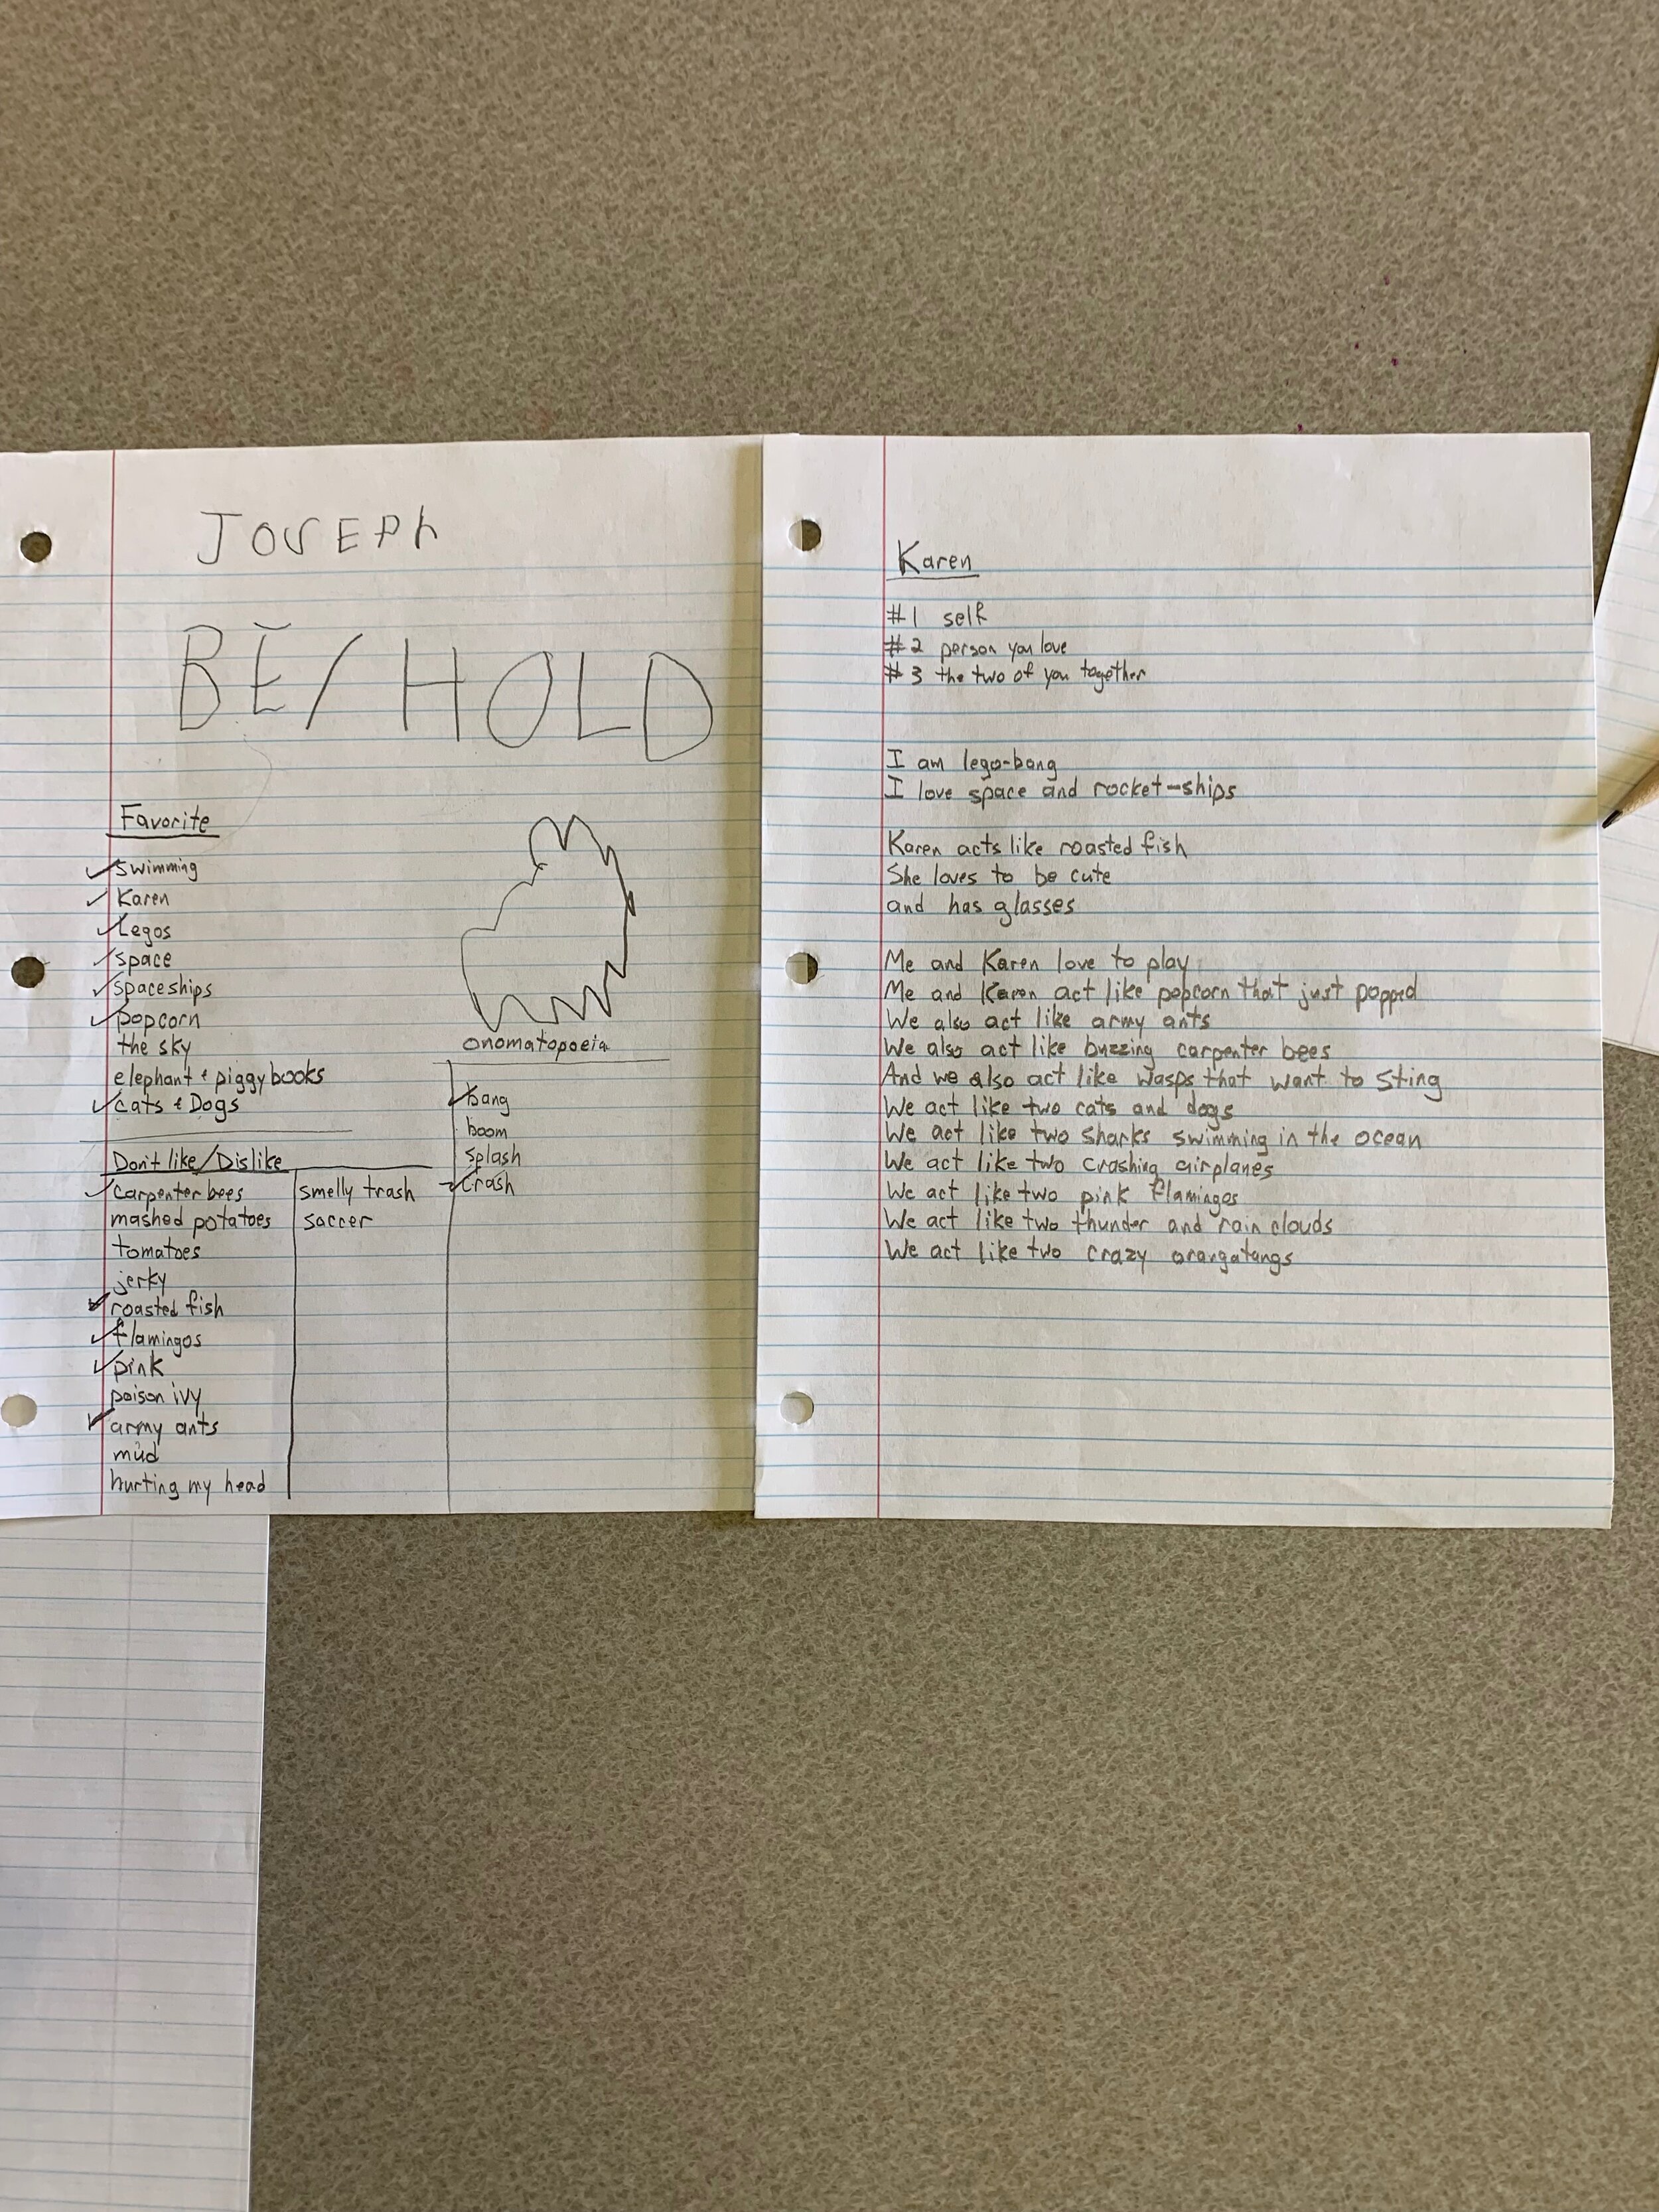 JOSEPh
BE/HOLD
Favorite
swimming
Karen
Legos
space
spaceships
popcorn
the sky
elephant & piggy books
cats & Dogs
Don't like/Dislike
carpenter bees
mashed potatoes
tomatoes
jerky
roasted fish
flamingos
pink
poison ivy
army ants
mud
hurting my head
smelly trash
soccer
onomatopoeia
bang
boom
splash
crash
Karen
#1 self
#2 person you love
#3 the two of you together
I am lego-bang
I love space and rocket-ships
Karen acts like roasted fish
She loves to be cute
and has glasses
Me and Karen love to play
Me and Karen act like popcorn that just popped
We also act like army ants
We also act like buzzing carpenter bees
And we also act like wasps that want to sting
We act like two cats and dogs
We act like two sharks swimming in the ocean
We act like two crashing airplanes
We act like two pink flamingos
We act like two thunder and rain clouds
We act like two crazy orangatangs